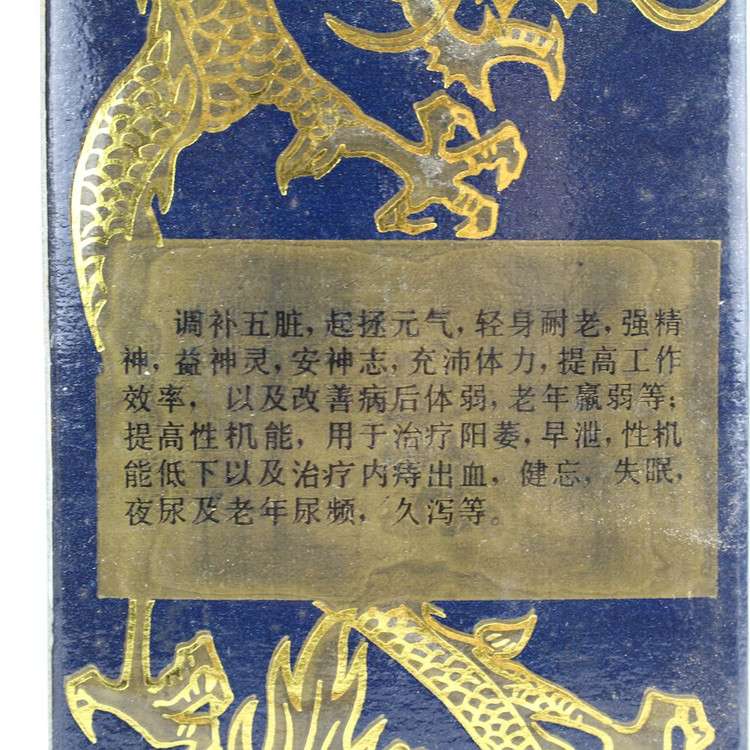 调补五脏,起拯元气,轻身耐老,强精
神,益神灵,安神志,充沛体力,提高工作
效率,以及改善病后体弱,老年羸弱等;
提高性机能,用于治疗阳萎,早泄,性机
能低下以及治疗内痔出血,健忘,失眠,
夜尿及老年尿频,久泻等。